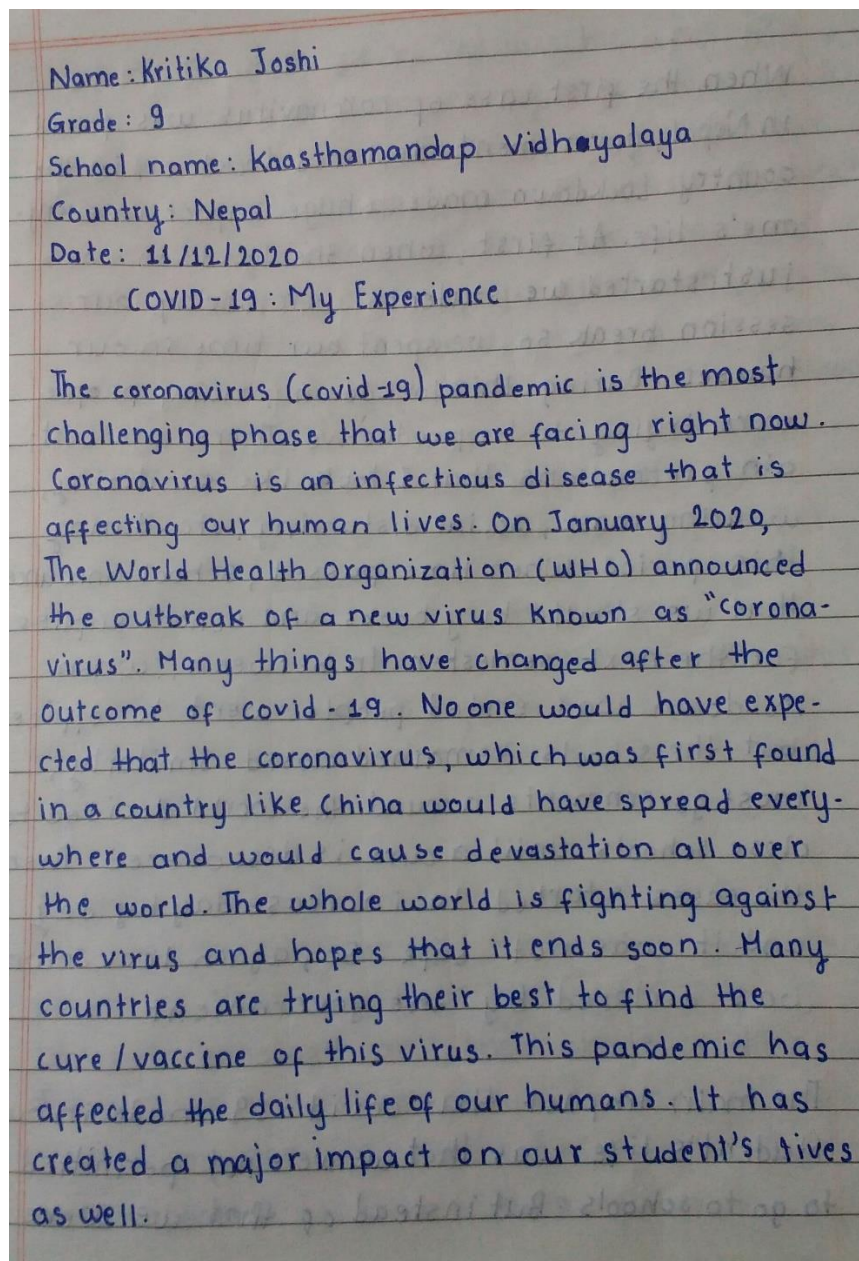 Name: Kritika Joshi
Grade: 9
School name: Kaasthamandap Vidhayalaya
Country: Nepal
Date: 11/12/2020
COVID-19: My Experience
The coronavirus (covid-19) pandemic is the most
challenging phase that we are facing right now.
Coronavirus is an infectious disease that is
affecting our human lives. On January 2020,
The World Health Organization (WHO) announced
the outbreak of a new virus known as "corona-
virus". Many things have changed after the
outcome of covid-19. No one would have expe-
cted that the coronavirus, which was first found
in a country like China would have spread every-
where and would cause devastation all over
the world. The whole world is fighting against
the virus and hopes that it ends soon. Many
countries are trying their best to find the
cure/vaccine of this virus. This pandemic has
affected the daily life of our humans. It has
created a major impact on our student's lives
as well.